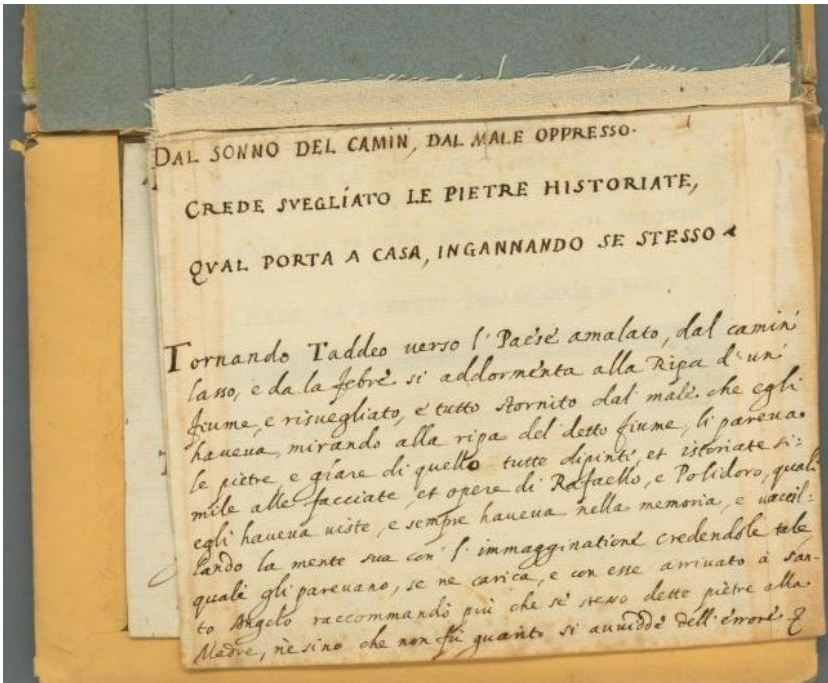 DAL SONNO DEL CAMIN, DAL MALE OPPRESSO.
CREDE SVEGLIATO LE PIETRE HISTORIATE,
QVAL PORTA A CASA, INGANNANDO SE STESSO
Tornando Taddeo verso l' Paese amalato, dal camin
lasso, e da la febre si addormenta alla Ripa d' un
fiume, e risuegliato, e tutto stornito dal male che egli
haueua, mirando alla ripa del detto fiume, li pareua
le pietre e giare di quello tutte dipinte, et istoriate si:
mile alle facciate, et opere di Rafaello, e Polidoro, quali
egli haueua uiste, e sempre haueua nella memoria, e uaccil:
lando la mente sua con l' immagginatione credendole tale
quale gli pareuano, se ne carica, e con esse arriuato à San:
to Angelo raccommandò più che se stesso dette piètre alla
Madre, ne sino che non fù guarito si auuidde dell' errore